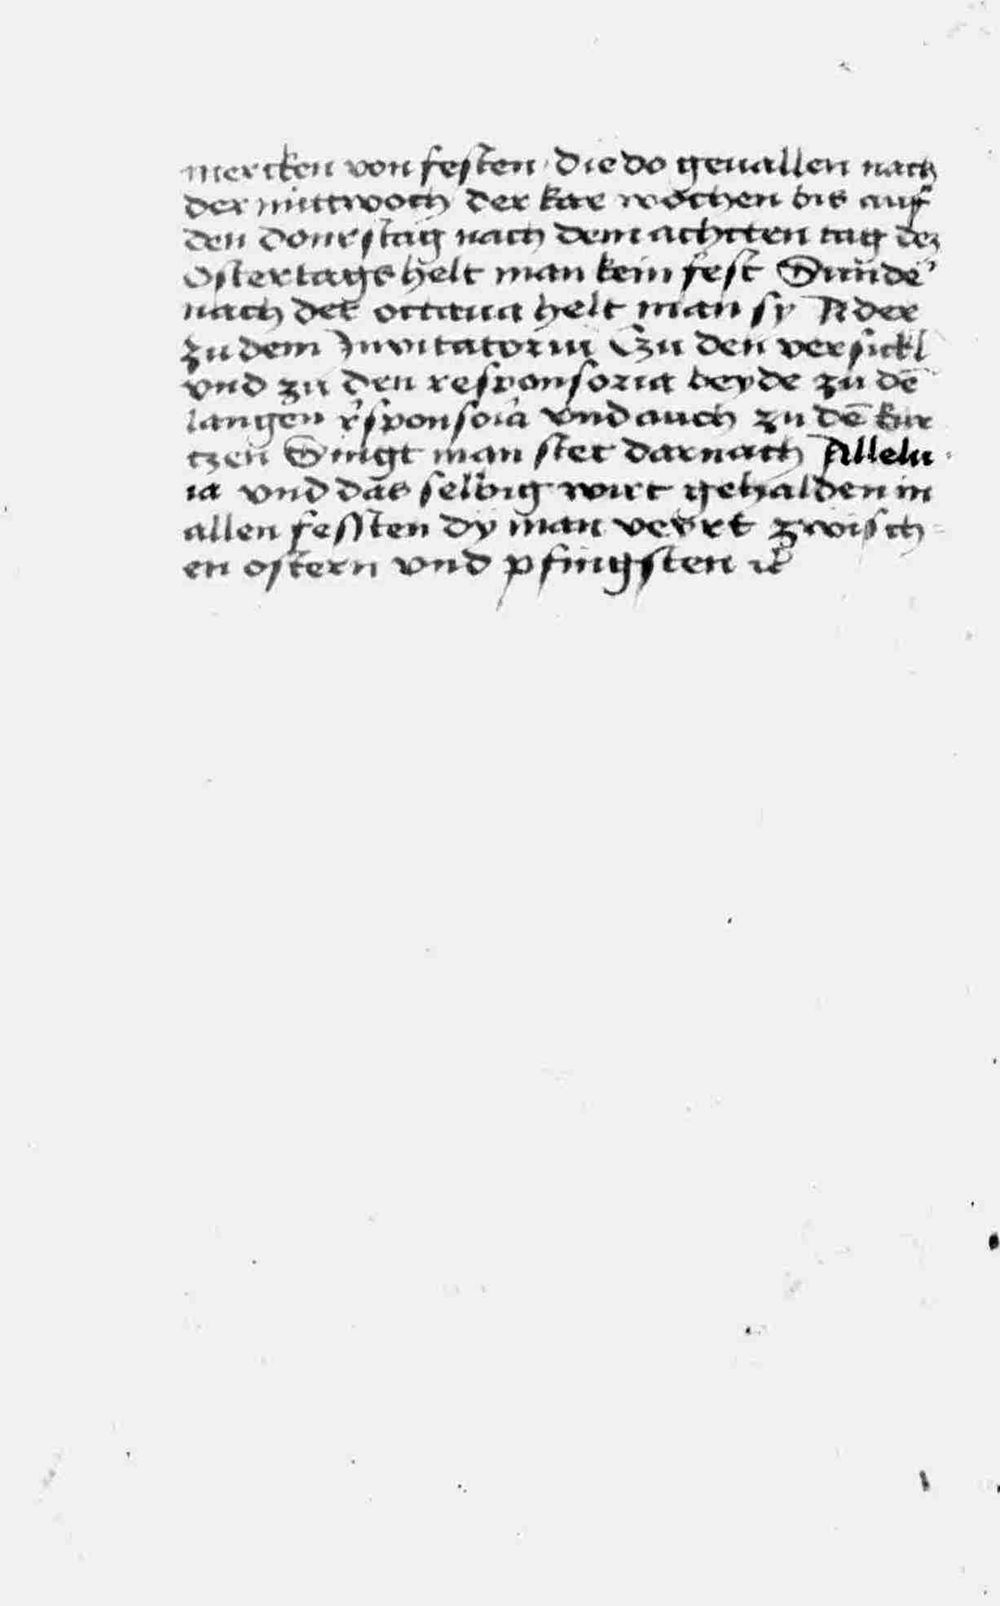 mercken von festen · die do geuallen nach
der mittwoch der kar wochen bis auf
den donrstag nach dem achtten tag dez
Ostertags helt man kein fest Sunde᷑
nach der octaua helt man sy Ader
zu dem Jnvitatoriu Czu den versickl
vnd zu den responsoria beyde zu dē
langen r᷑sponsoria vnd auch zu dē kur
tzen Singt man stet darnach Allelu
ia vnd das selbig wirt gehalden in
allen fessten dy man veyrt zwisch=
en ostern vnd pfingsten ꝛc̄